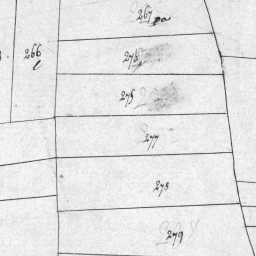 267
266
276
275
277
278
279